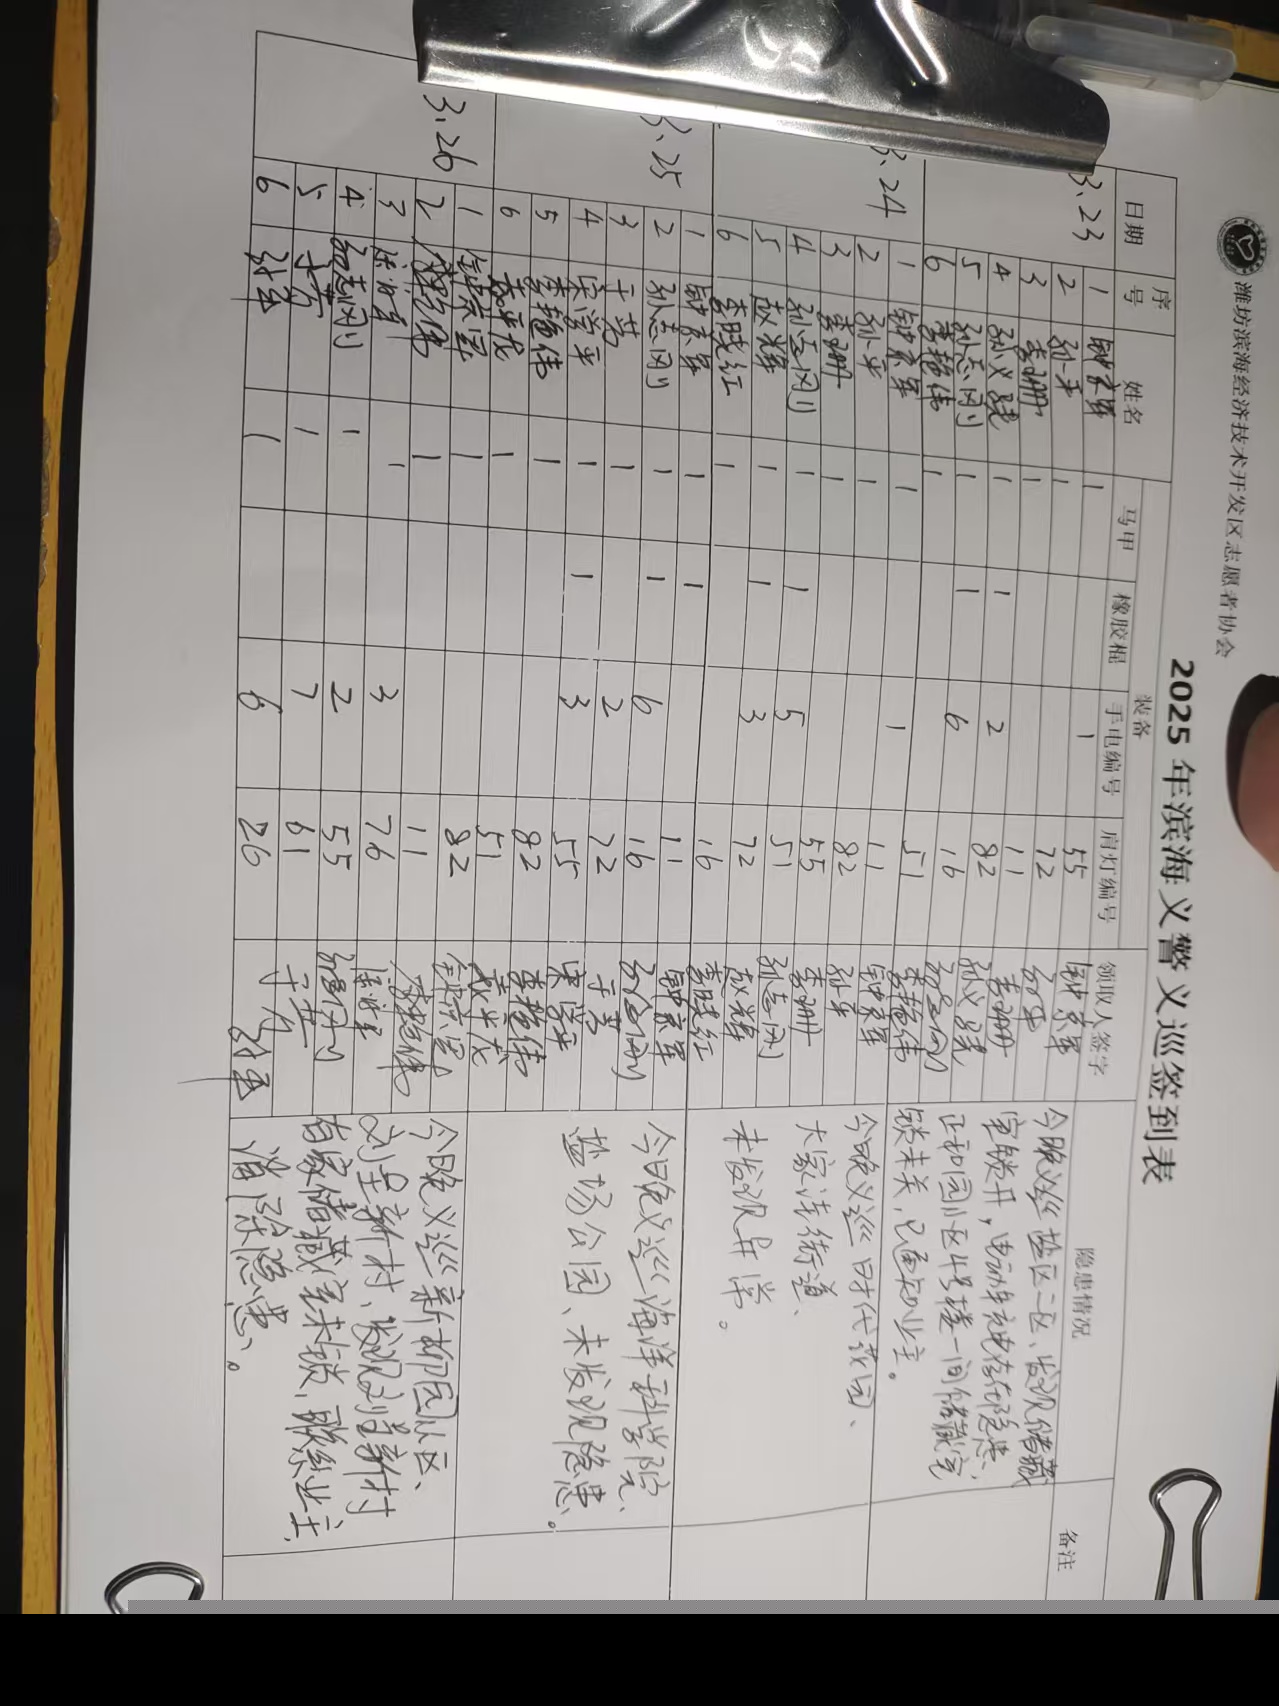 潍坊滨海经济技术开发区志愿者协会
2025 年滨海义警义巡签到表
日期 序号 姓名 装备 领取人签字 隐患情况 备注
马甲 橡胶棍 手电编号 肩灯编号
3.23
1 1 1 55
2 孙平 1 72
3 李珊 1 11 李珊
4 孙义 1 1 2 82 孙义
5 孙志刚 1 1 6 16 孙志刚
6 李艳伟 1 51 李艳伟
今晚义巡盐区二区、发现储藏
室锁开，电动车充电存在隐患、
正和园小区4号楼一间储藏室
锁未关，已通知业主。
3.24
1 1 1 11
2 孙平 1 82 孙平
3 李珊 1 55 李珊
4 孙志刚 1 1 5 51 孙志刚
5 赵辉 1 1 3 72 赵辉
6 李晓红 1 16 李晓红
今晚义巡时代花园、
大家洼街道、
未发现异常。
3.25
1 1 1 11
2 孙志刚 1 1 6 16 孙志刚
3 于芳 1 2 72 于芳
4 宋学平 1 1 3 55 宋学平
5 李艳伟 1 82 李艳伟
6 1 51
今日晚义巡海洋科学院、
盐场公园、未发现隐患。
3.26
1 1 82
2 1 11
3 1 3 76
4 孙志刚 1 2 55 孙志刚
5 于芳 1 7 61 于芳
6 1 6 26
今日晚义巡新柳园小区、
刘呈新村、发现刘呈新村
有家储藏室未锁、联系业主
消除隐患。